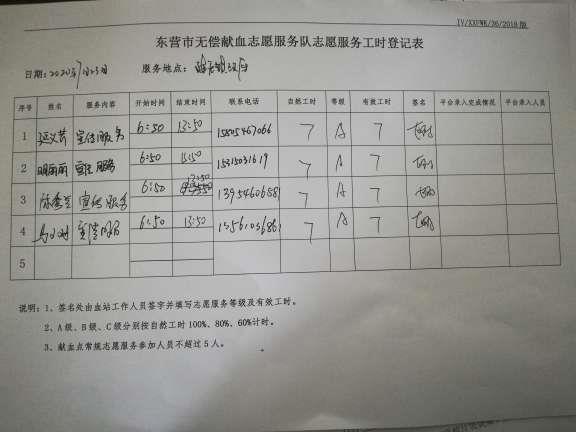 IV/XXFWK/36/2018版
东营市无偿献血志愿服务队志愿服务工时登记表
日期: 服务地点:
序号 姓名 服务内容 开始时间 结束时间 联系电话 自然工时 等级 有效工时 签名 平台录入完成情况 平台录入人员
1 宣传服务 6:50 13:50 15805467066 7 A 7
2 宣传服务 6:50 13:50 7 A 7
3 宣传服务 6:50 13:50 13954606881 7 A 7
4 6:50 13:50 7 A 7
5
说明：1、签名处由血站工作人员签字并填写志愿服务等级及有效工时。
2、A级、B级、C级分别按自然工时100%、80%、60%计时。
3、献血点常规志愿服务参加人员不超过5人。